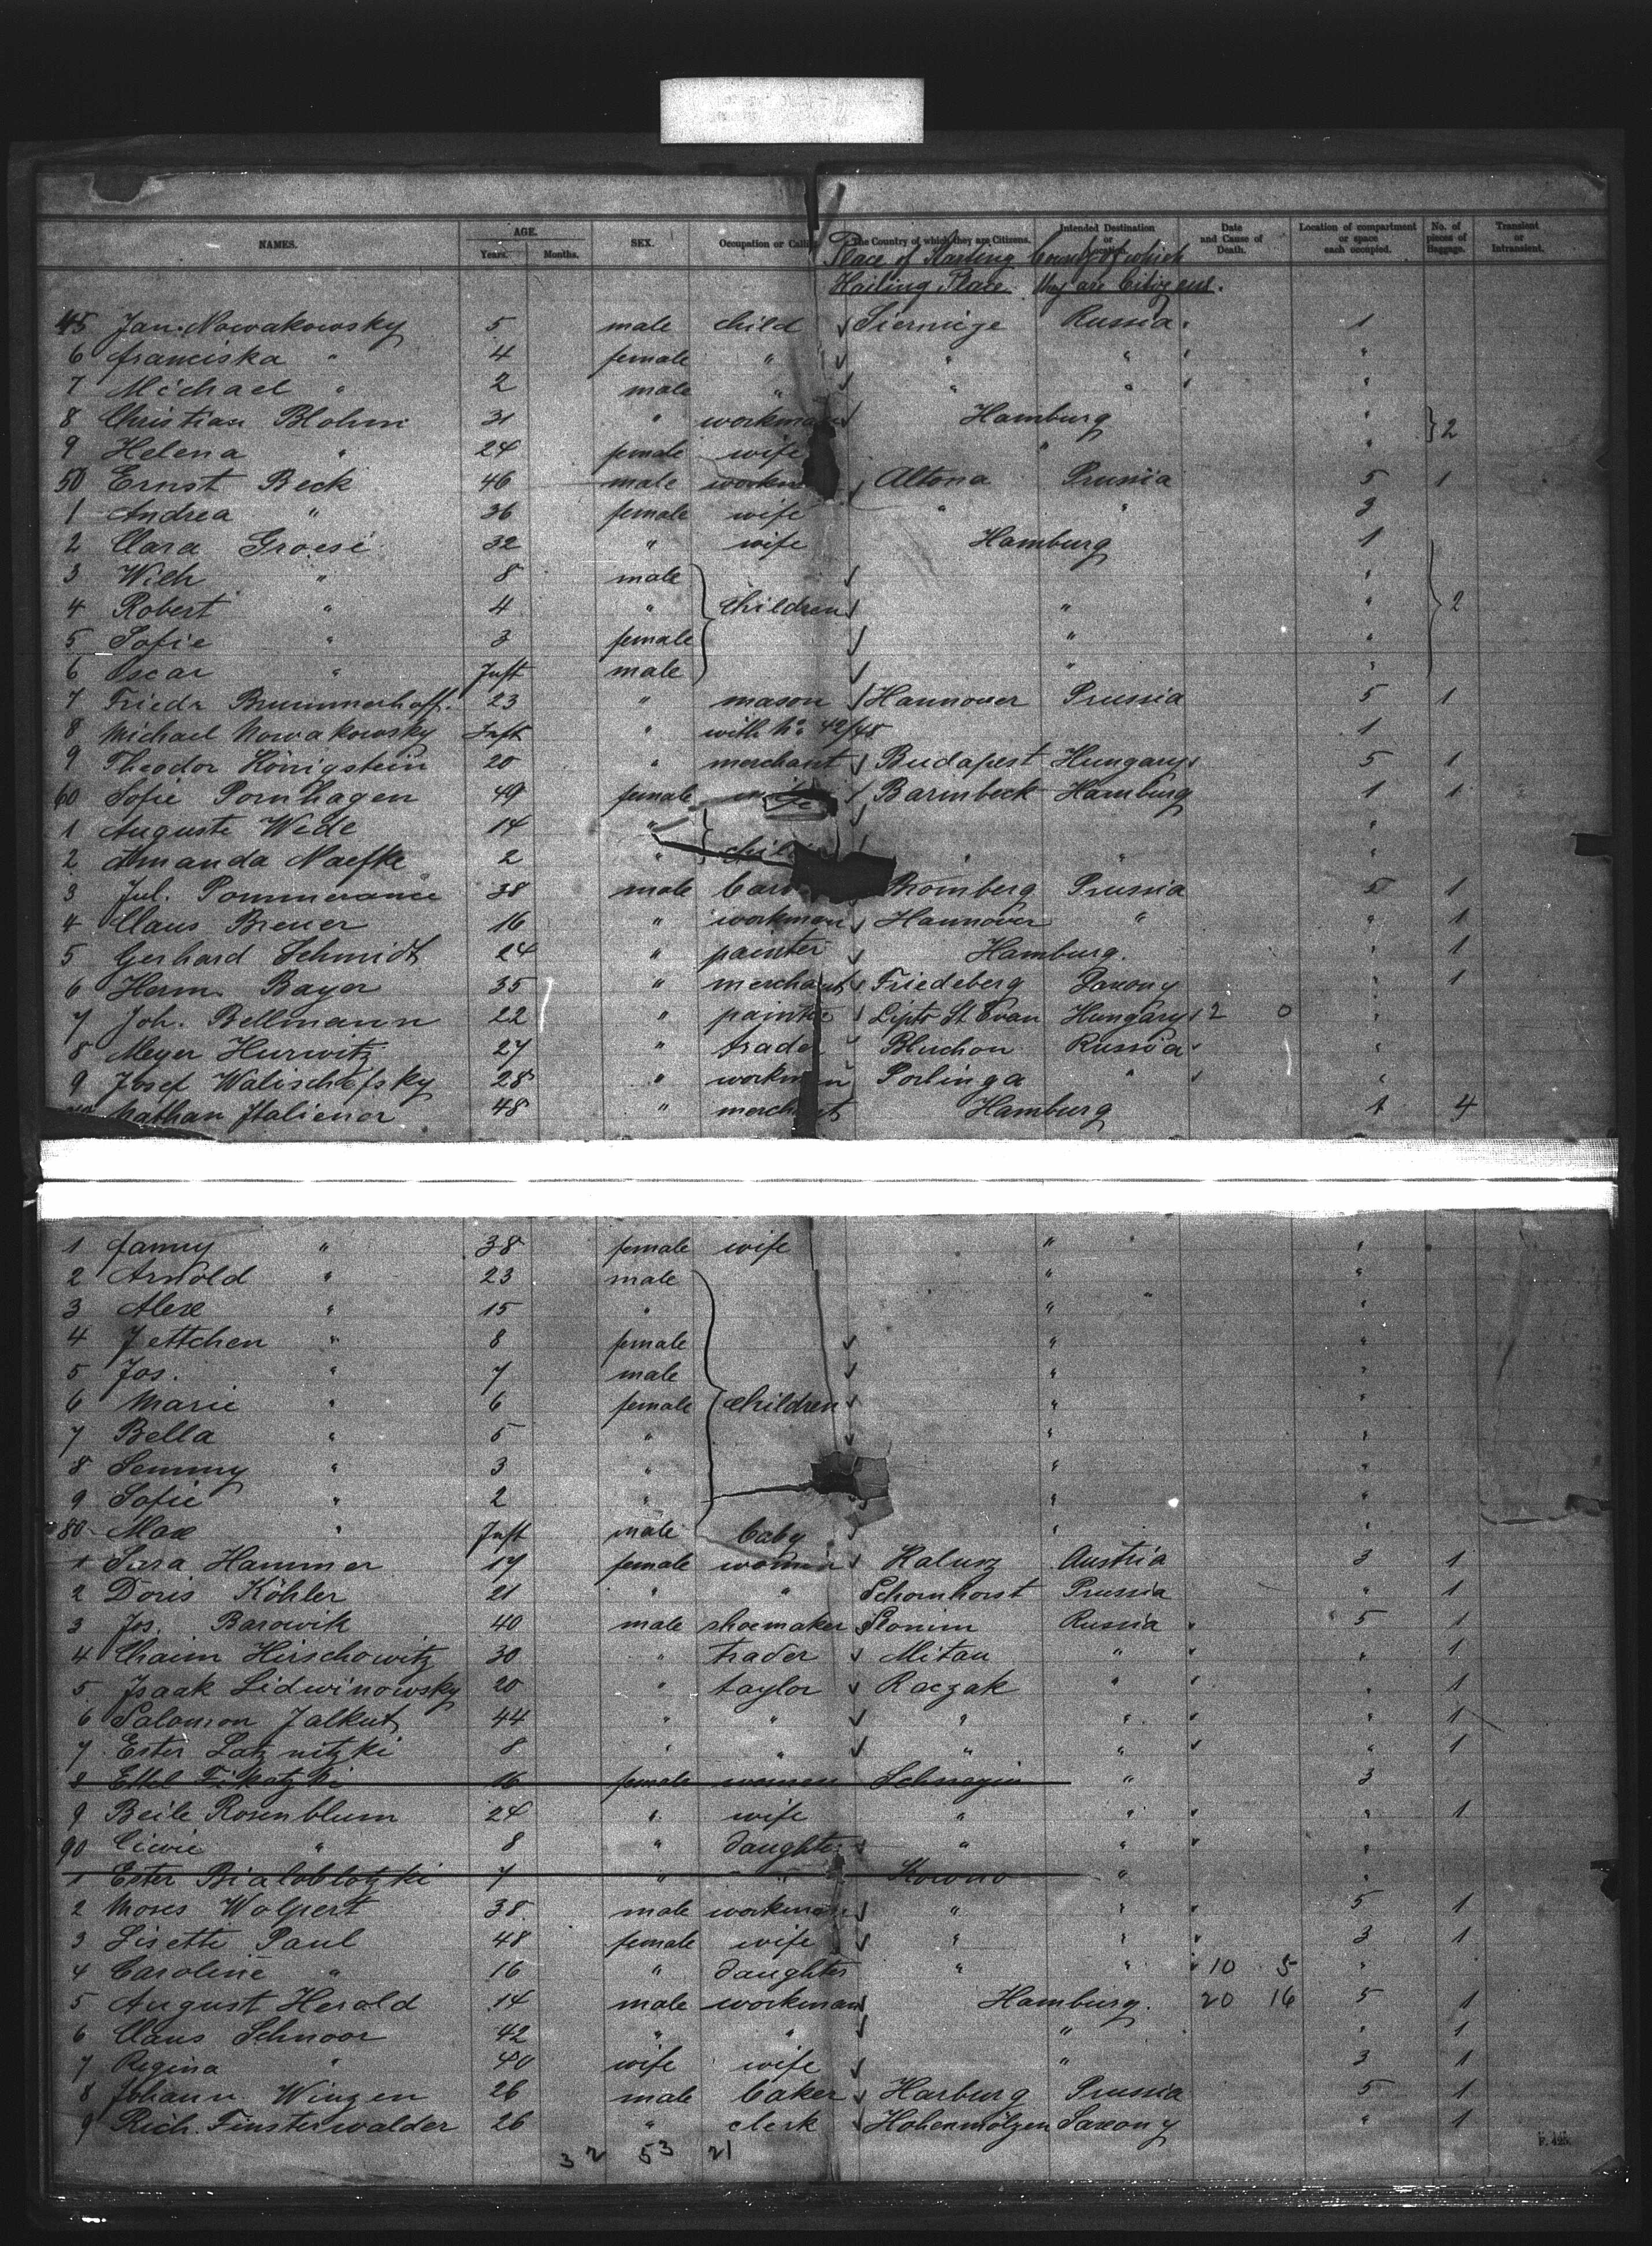 NAMES. AGE. Years. Months. SEX. Occupation or Calling The Country of which they are Citizens. Intended Destination or Location. Date and Cause of Death. Location of compartment or space each occupied. No. of pieces of Baggage. Transient or Intransient.
Place of Starting Country of which
Hailing Place. they are Citizens.
45 Jan. Nowakowsky 5 male child Russia 1
6 Franciska " 4 female " " " "
7 Michael " 2 male " " " "
8 Christian Blohm 31 " workman Hamburg " } 2
9 Helena " 24 female wife " "
50 Ernst Beck 46 male workm Altona Prussia 5 1
1 Andrea " 36 female wife " " 3
2 Clara Groese 32 " wife Hamburg 1
3 Wilh " 8 male "
4 Robert " 4 " children " " 2
5 Sofie " 3 female " "
6 Oscar " Inft male " "
7 Friedr Brummerhoff. 23 " mason Hannover Prussia 5 1
8 Michael Nowakowsky Inft " with No. 42/45 1
9 Theodor Königstein 20 " merchant Budapest Hungary 5 1
60 Sofie Pornhagen 49 female wife Barmbeck Hamburg 1 1
1 Auguste Wede 14 " "
2 Amanda Naefke 2 " child " " "
3 Jul. Pommerance 38 male Bromberg Prussia 5 1
4 Claus Breuer 16 " workman Hannover " " 1
5 Gerhard Schmidt 24 " painter Hamburg. " 1
6 Herm. Bayer 35 " merchant Friedeberg Saxony " 1
7 Joh. Bellmann 22 " painter Lipto St. Evan Hungary 12 0 "
8 Meyer Hurwitz 27 " trader Bluchon Russia "
9 Josef Walischefsky 28 " workman Porlinga " "
Nathan Italiener 48 " merchant Hamburg 1 4
1 Fanny " 38 female wife " "
2 Arnold " 23 male " "
3 Alex " 15 " " "
4 Jettchen " 8 female " "
5 Jos. " 7 male " "
6 Marie " 6 female children " "
7 Bella " 5 " " "
8 Semmy " 3 " " "
9 Sofie " 2 " " "
80 Max " Inft male baby " "
1 Sara Hammer 17 female woman Kalusz Austria 3 1
2 Doris Köhler 21 " " Schornhorst Prussia " 1
3 Jos. Barowik 40 male shoemaker Slonim Russia 5 1
4 Chaim Hirschowitz 30 " trader Mitau " " 1
5 Isaak Lidwinowsky 20 " taylor Raczak " " 1
6 Salomon Jalkut 44 " " " " " 1
7 Ester Latznitzki 8 " " " " " 1
8 Ettel Fikatzki 16 female women " 3
9 Beile Rosenblum 24 " wife " " " 1
90 Ciwie " 8 " daughter " " "
1 Ester Bialoblotzki 7 " " Kowno " "
2 Moses Wolpert 38 male workman " " 5 1
3 Lisette Paul 48 female wife " " 3 1
4 Caroline " 16 " daughter " " 10 5 "
5 August Herold 14 male workman Hamburg. 20 16 5 1
6 Claus Schnoor 42 " " " " 1
7 Regina " 40 wife wife " 3 1
8 Johann Winzen 26 male baker Harburg Prussia 5 1
9 Rich. Finsterwalder 26 " clerk Hohenmölzen Saxony " 1
32 53 21